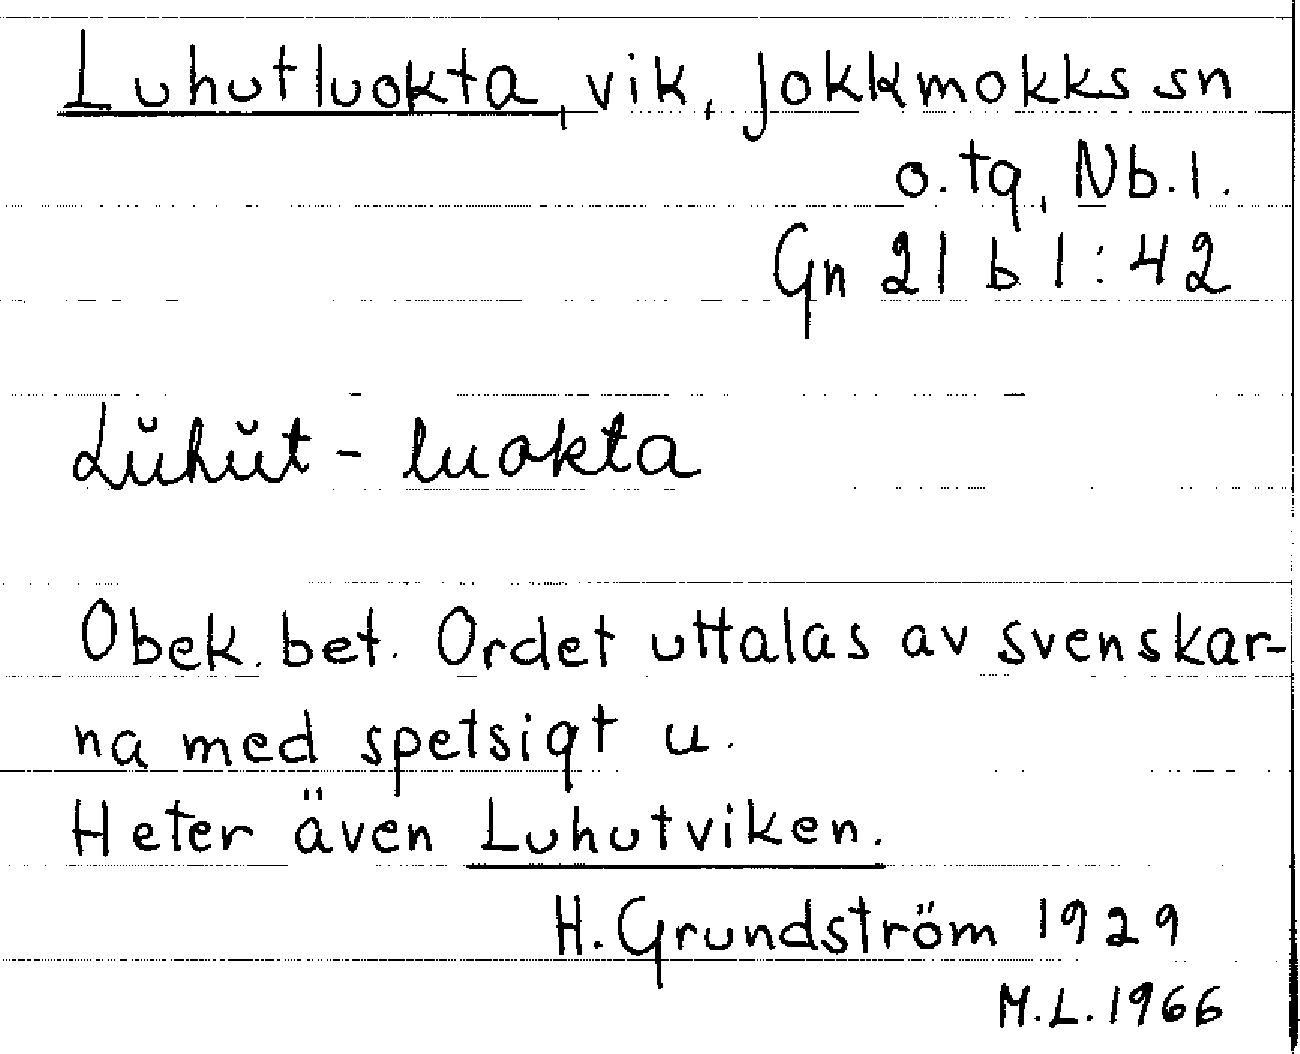 Luhutluokta, vik, Jokkmokks sn
o. tg, Nb. l.
Gn 21 b 1:42
Lŭhŭt - luokta
Obek. bet. Ordet uttalas av svenskar-
na med spetsigt u.
Heter även Luhutviken.
H. Grundström 1929
M.L. 1966